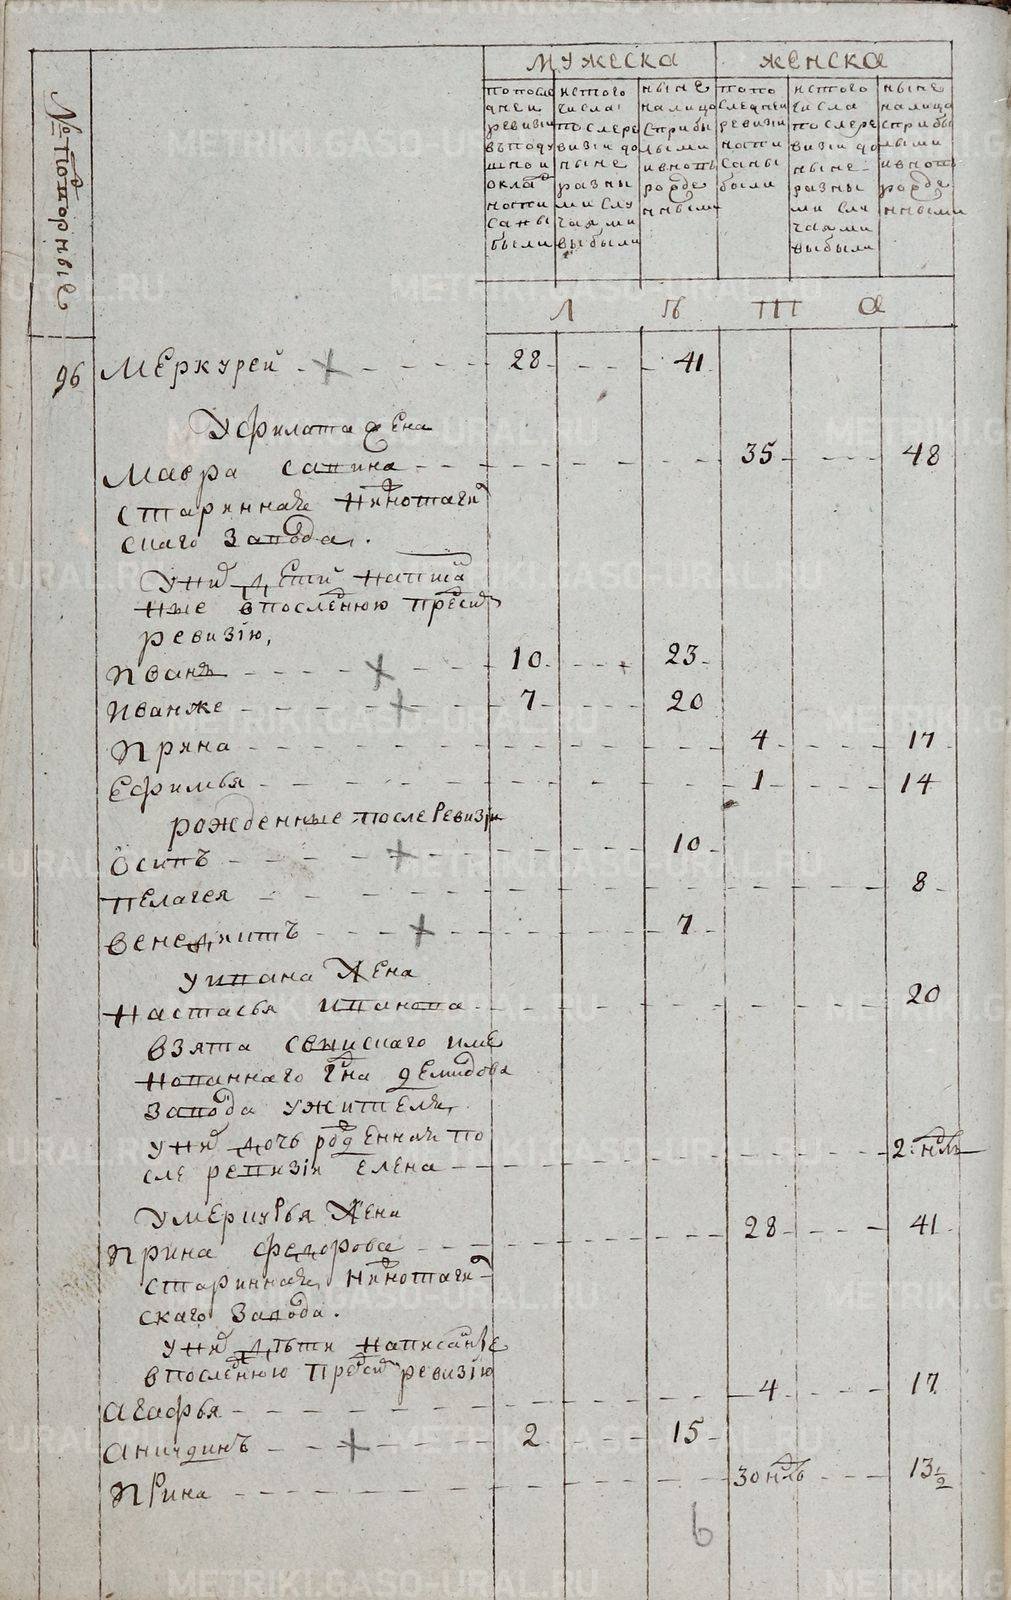 № подворные
мужеска
женска
по последней ревизіи в подушной оклад написаны были
ис того числа после ревизіи до ныне разными случаями выбыли
ныне на лицо с прибылыми и вновь рожденными
по последней ревизіи написаны были
ис того числа после ревизіи до ныне разными случаями выбыли
ныне на лицо с прибылыми и вновь рожденными
Л Ѣ Т А
96 Меркурей 28 41
У Филата жена
Мавра Савина 35 48
стариннаго Нижнотагил
скаго завода.
У них детей написан
ные в последнюю пред сим
ревизію,
Иванъ 10 23
Иван же 7 20
Ирина 4 17
Ефимья 1 14
рожденные после ревизіи
Осипъ 10
Пелагея 8
Венедиктъ 7
У Ивана жена
Настасья Иванова 20
взята с
нованнаго г᠎на Демидова
завода у жителя,
у них дочь рожденная по
сле ревизіи Елена 2 нѣд
У Меркурья жена
Ирина Федорова 28 41
старинная Нижнотагил
скаго завода.
У них дѣти написанные
в последнюю пред сим ревизію
Агафья 4 17
Аникдинъ 2 15
Ирина 30 нѣд 13½
6
METRIKI.GASO-URAL.RU